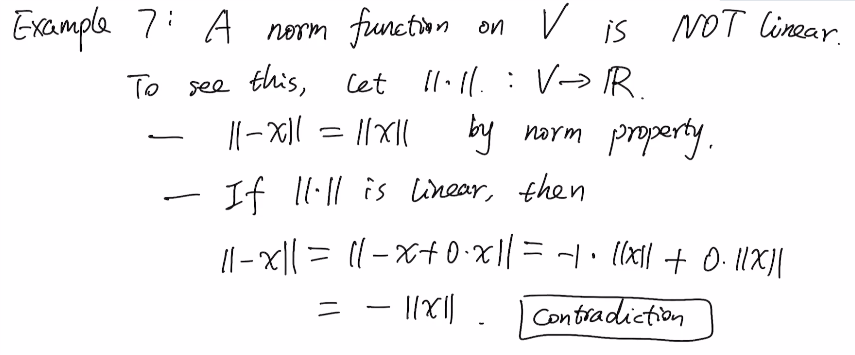 Example 7: A norm function on V is NOT linear.
To see this, let ||·||. : V→ℝ.
— ||-x|| = ||x|| by norm property.
— If ||·|| is linear, then
||-x|| = ||-x+0·x|| = -1·||x|| + 0·||x||
= -||x||. Contradiction